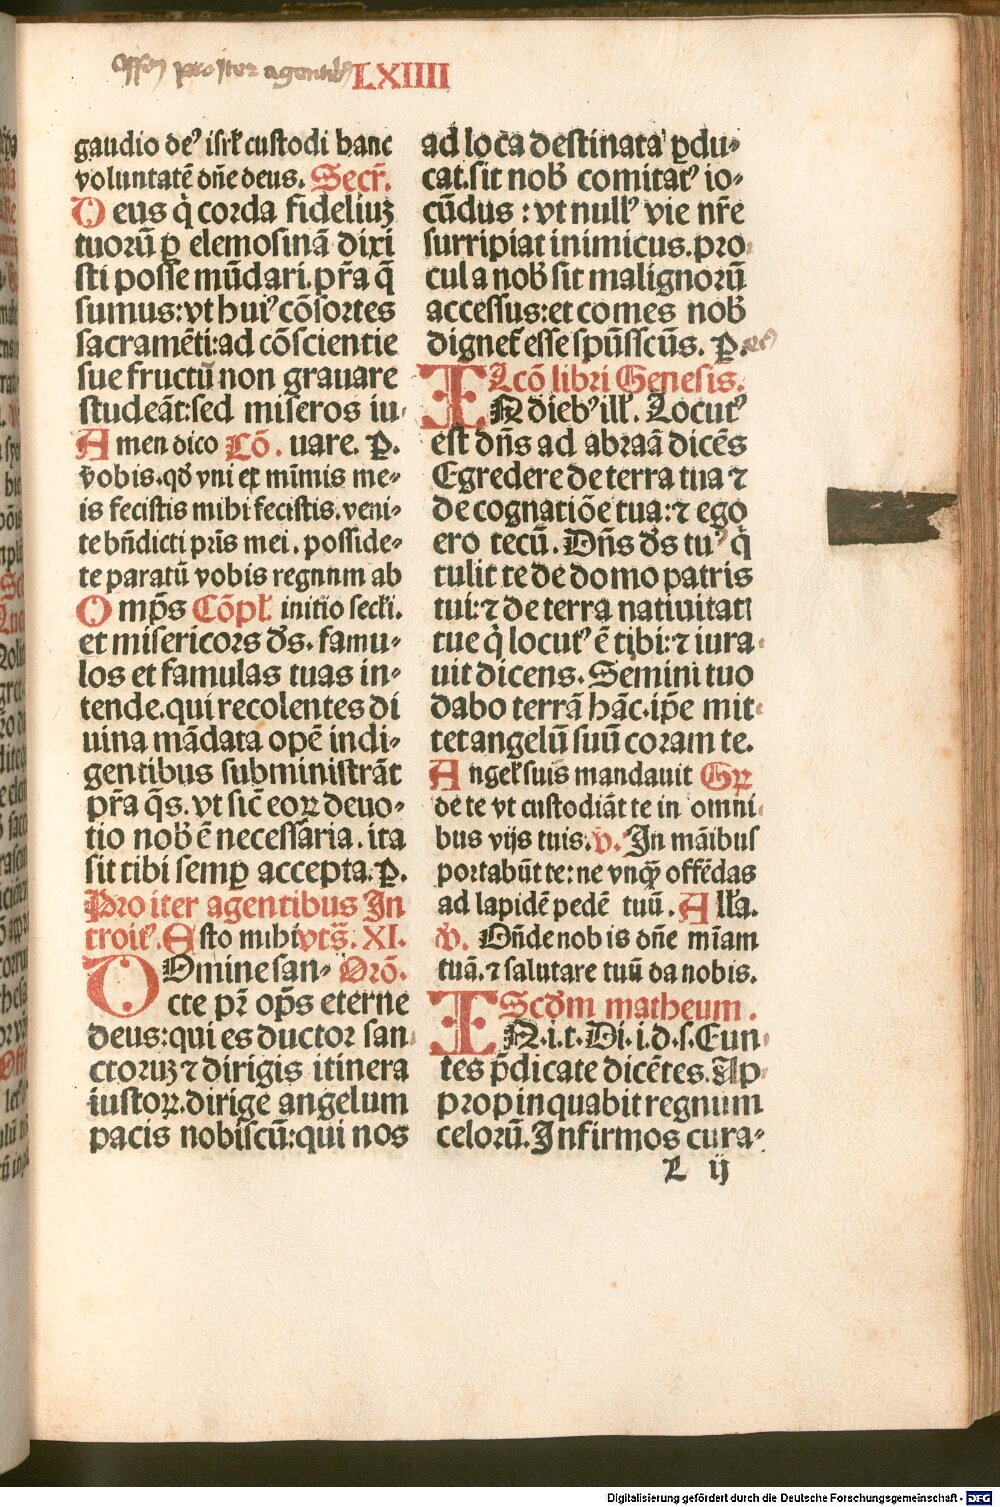 Offm pro iter agentibꝰ LXIIII
gaudio deꝰ iſrł cuſtodi hanc
voluntatē dn̄e deus. Secr̄.
Deus q̇ corda fideliuʒ
tuorū ꝑ elemoſinā dixi
ſti poſſe mūdari. pr̄a q̄
ſumus: vt huiꝰ cōſortes
ſacramēti: ad cōſcientie
ſue fructū non grauare
ſtudeāt: ſed miſeros iu-
Amen dico Cō. uare. P.
vobis. qđ vni ex mīmis me-
is feciſtis mihi feciſtis. veni-
te bn̄dicti pr̄is mei. poſſide-
te paratū vobis regnnm ab
Omp̄s Cōpł. initio ſecłi.
et miſericors ds̄. famu-
los et famulas tuas in-
tende. qui recolentes di
uina mādata opē indi-
gentibus ſubminiſtrāt
pr̄a q̄s. vt ſic̄ eoꝝ deuo-
tio nob̄ ē neceſſaria. ita
ſit tibi ſemꝑ accepta. P.
Pro iter agentibus In
troitꝰ. Eſto mihi vts̄. XI.
DOmine ſan- Orō.
cte pr̄ op̄s eterne
deus: qui es ductor ſan-
ctoruʒ ⁊ dirigis itinera
iuſtoꝝ. dirige angelum
pacis nobiſcū: qui nos
ad loca deſtinata ꝑdu-
cat. ſit nob̄ comitatꝰ io-
cūdus: vt nullꝰ vie nr̄e
ſurripiat inimicus. pro-
cul a nob̄ ſit malignorū
acceſſus: et comes nob̄
dignet̄ eſſe ſpūſſcūs. P.
Lcō libri Geneſis.
IN diebꝰ ilł. Locutꝰ
eſt dn̄s ad abraā dicēs
Egredere de terra tua ⁊
de cognatiōe tua: ⁊ ego
ero tecū. Dn̄s ds̄ tuꝰ q̇
tulit te de domo patris
tui: ⁊ de terra natiuitati
tue q̇ locutꝰ ē tibi: ⁊ iura-
uit dicens. Semini tuo
dabo terrā hāc. ip̄e mit-
tet angelū ſuū coram te.
Angeł ſuis mandauit Gr̄
de te vt cuſtodiāt te in omni-
bus vijs tuis. v̄. In māibus
portabūt te: ne vnq̄ꝫ offēdas
ad lapidē pedē tuū. Alła.
v̄. Oſn̄de nobis dn̄e mīam
tuā. ⁊ ſalutare tuū da nobis.
Scdm matheum.
IN. i. t. Di. i. d. ſ. Eun-
tes p̄dicate dicētes. Ap-
propinquabit regnum
celorū. Infirmos cura-
L ij
Digitalisierung gefördert durch die Deutsche Forschungsgemeinschaft - DFG